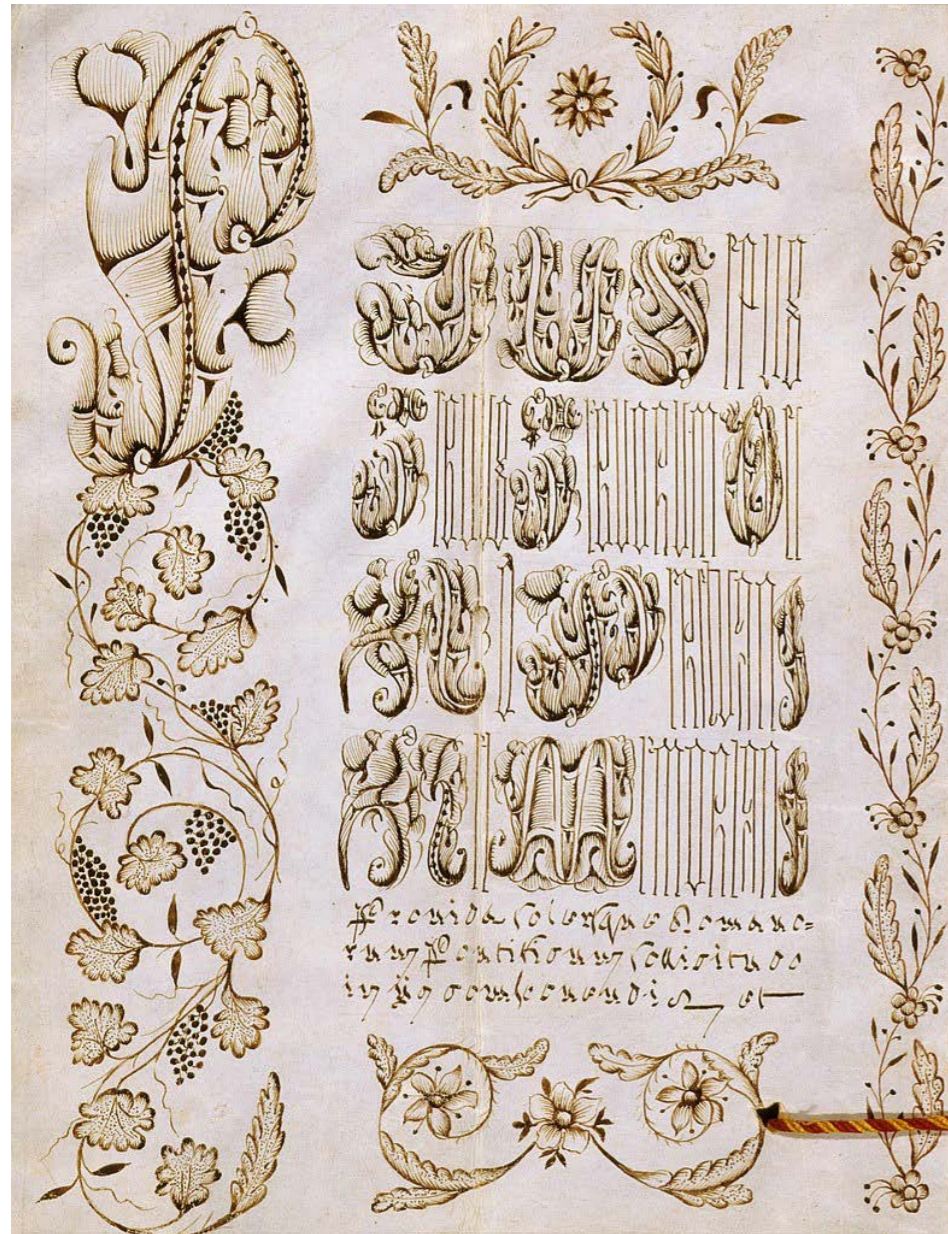 PIUS Eps
Servus Servorum Dei
Ad Perpetuam
Rei Memoriam
Provida solersque Romano=
rum Pontificum sollicitudo
in et